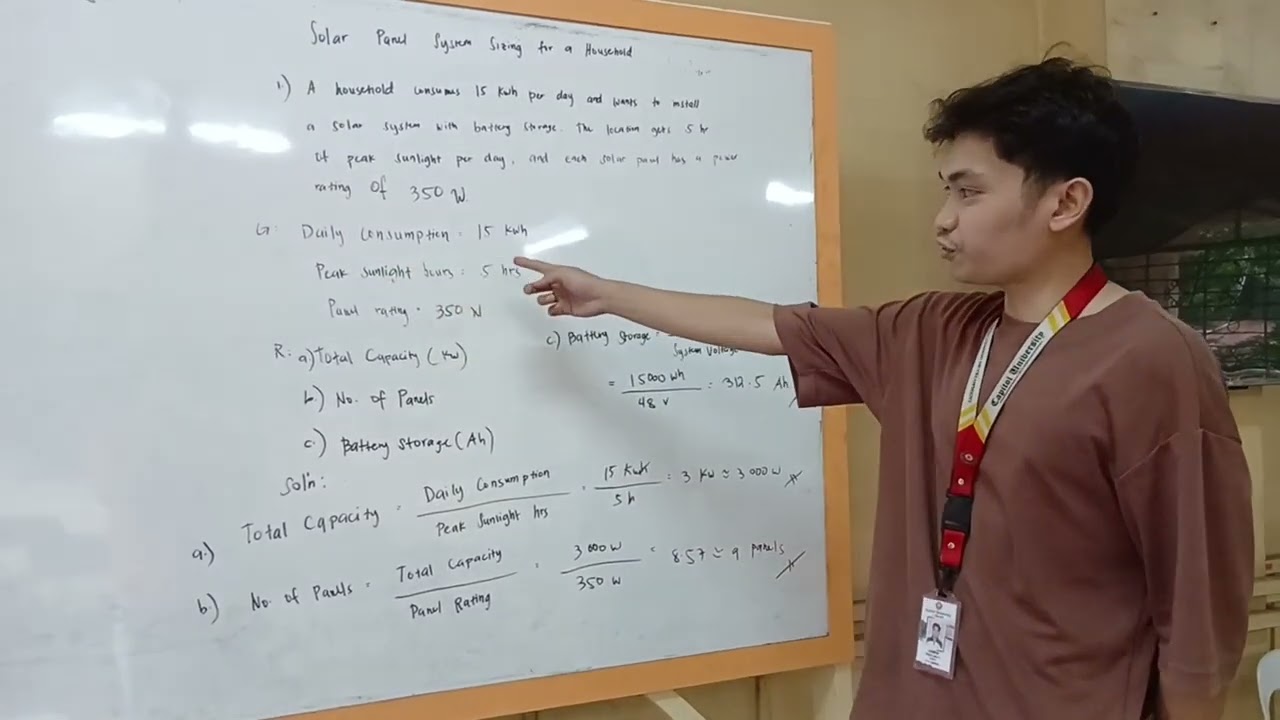 Solar Panel System Sizing for a Household
1.) A household consumes 15 kWh per day and wants to install
a solar system with battery storage. The location gets 5 hr
of peak sunlight per day, and each solar panel has a power
rating of 350 W.
G: Daily Consumption = 15 kWh
Peak sunlight hours = 5 hrs
Panel rating = 350 W
R: a) Total Capacity (kW)
b.) No. of Panels
c.) Battery Storage (Ah)
c.) Battery Storage =
System Voltage
= 15000 Wh / 48 V = 312.5 Ah
Sol'n:
a.) Total Capacity = Daily Consumption / Peak Sunlight hrs = 15 kWh / 5 h = 3 kW ≈ 3000 W
b.) No. of Panels = Total Capacity / Panel Rating = 3000 W / 350 W = 8.57 ≈ 9 panels
Capitol University